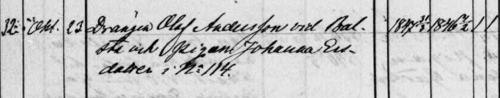 32 Okt. 23 Drängen Olaf Andersson vid Bal-
ste och Pigan Johanna Ers-
dotter i N: 114.